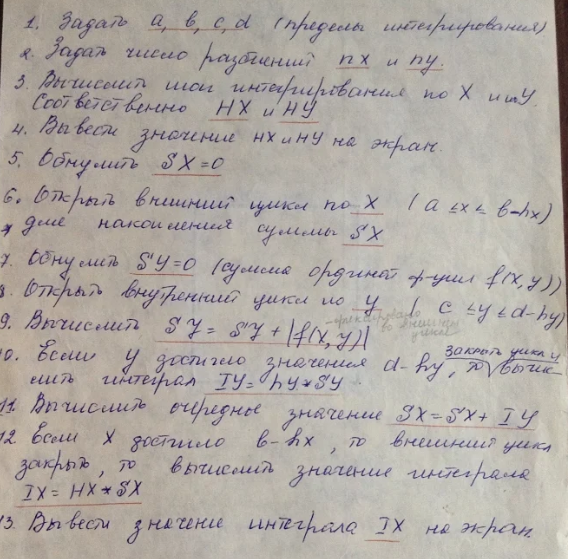 1. Задать a, b, c, d (пределы интегрирования)
2. Задать число разбиений nx и ny.
3. Вычислить шаг интегрирования по X и по Y.
Соответственно HX и HY
4. Вывести значение HX и HY на экран.
5. Обнулить SX=0
6. Открыть внешний цикл по X (a ≤ x ≤ b-hx)
для накопления суммы SX
7. Обнулить SY=0 (сумма ординат ф-ции f(x,y))
8. Открыть внутренний цикл по y (c ≤ y ≤ d-hy)
9. Вычислить SY = SY + |f(x,y)|
закрыть цикл y
10. Если y достигло значения d-hy, то вычис-
лить интеграл IY = hY*SY
11 Вычислить очередное значение SX = SX + IY
12 Если X достигло b-hx, то внешний цикл
закрыть, то вычислить значение интеграла
IX = HX*SX
13. Вывести значение интеграла IX на экран.